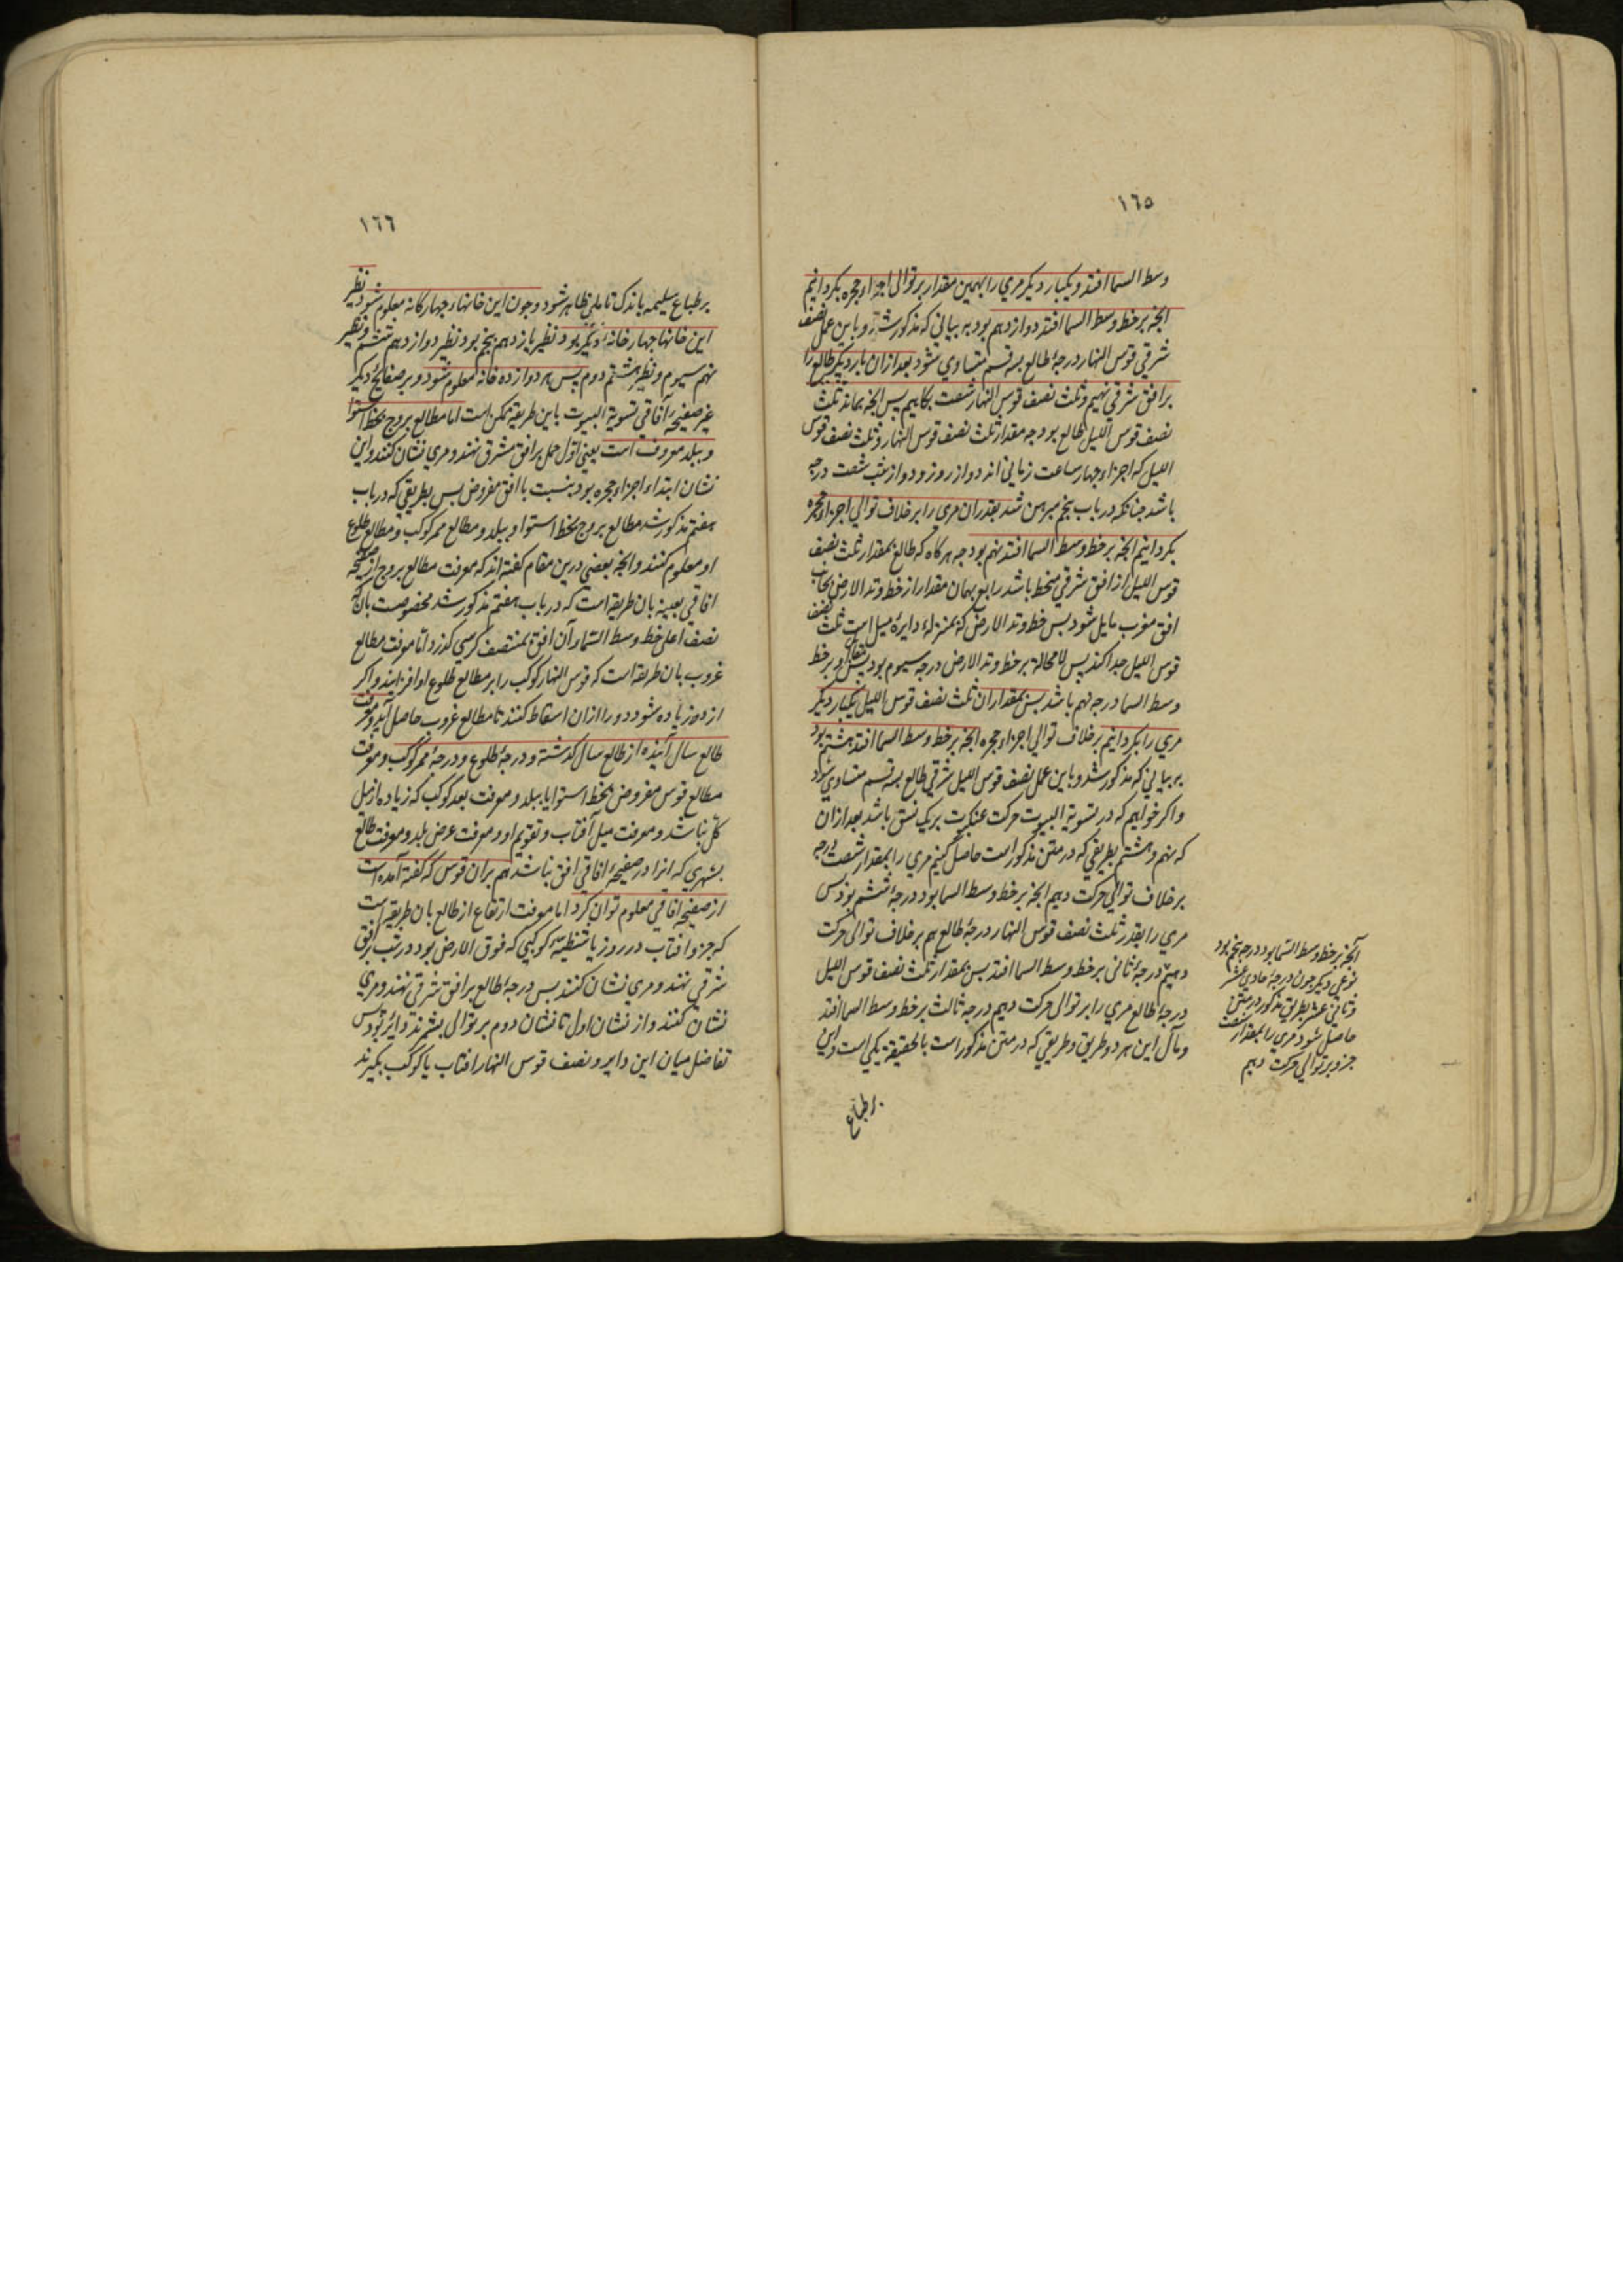 ١٦٥
وسط السما افتد و یکبار دیکر مري را بهمین مقدار بر توالی اجزاء حجره بکردانیم
انجه بر خط وسط السما افتد دوازدهم بود به بیانی که مذکور شد و باین عمل نصف
شرقی قوس النهار درجۀ طالع بسه قسم متساوي شود بعد ازان بار دیکر طالع را
بر افق شرقي نهیم و ثلث نصف قوس النهار از شصت بکاهیم پس انجه بماند ثلث
نصف قوس اللیل طالع بود چه مقدار ثلث نصف قوس النهار و ثلث نصف قوس
اللیل که اجزاء چهار ساعت زمانی اند دو از روز و دو از شب شصت درجه
باشد چنانکه در باب پنجم مبرهن شد بقدر ان مري را بر خلاف توالي اجزاء حجره
بکردانیم انجه بر خط وسط السما افتد نهم بود چه هرکاه که طالع بمقدار ثلث نصف
قوس اللیل از افق شرقي منحط باشد رابع بهمان مقدار از خط وتد الارض بجانب
افق مغرب مایل شود پس خط وتد الارض که بمنزلۀ دایرۀ میل است ثلث نصف
قوس اللیل جدا کند پس لا محالة بر خط وتد الارض درجه سیوم بود پس مقابل او بر خط
وسط السما درجه نهم باشد پس بمقدار ان ثلث نصف قوس اللیل یکبار دیکر
مري را بکردانیم بر خلاف توالي اجزاء حجره انجه بر خط وسط السما افتد هشتم بود
به بیانی که مذکور شد و باین عمل نصف قوس اللیل شرقی طالع بسه قسم متساوي شود
و اکر خواهیم که در تسویة البیوت حرکت عنکبوت بریک نسق باشد بعد ازان
که نهم و هشتم بطریقی که در متن مذکور است حاصل کنیم مري را بمقدار شصت درجه
بر خلاف توالي حرکت دهیم انجه بر خط وسط السما بود درجۀ ششم بود پس
مري را بقدر ثلث نصف قوس النهار درجۀ طالع هم بر خلاف توالی حرکت
دهیم درجۀ ثانی بر خط وسط السما افتد پس بمقدار ثلث نصف قوس اللیل
درجۀ طالع مري را بر توالي حرکت دهیم درجه ثالث بر خط وسط السما افتد
و مآل این هر دو طریق و طریقی که در متن مذکور است بالحقیقة یکی است و این
بر طباع
آنجه بر خط وسط السما بود درجه پنجم بود
نوعی دیکر چون درجۀ حادی عشر
و ثانی عشر بطریق مذکور در متن
حاصل شود مري را بمقدار شصت
جزو بر توالي حرکت دهیم
١٦٦
بر طباع سلیمه باندک تاملی ظاهر شود و چون این خانهاء چهارکانه معلوم شود نظیر
این خانها چهار خانۀ دیکر بود نظیر یازدهم پنجم بود نظیر دوازدهم ششم و نظیر
نهم سیوم و نظیر هشتم دوم پس هر دوازده خانه معلوم شود و بر صفایح دیکر
غیر صفیحۀ آفاقی تسویة البیوت باین طریقه ممکن است اما مطالع بروج بخط استوا
و ببلد معروف است یعنی اول حمل بر افق مشرق نهند و مري نشان کنند و این
نشان ابتداء اجزاء حجره بود بنسبت با افق مفروض پس بطریقی که در باب
هفتم مذکور شد مطالع بروج بخط استوا و ببلد و مطالع ممر کوکب و مطالع طلوع
او معلوم کنند و انجه بعضی درین مقام کفته اند که معرفت مطالع بروج از صفیحه
افاقي بعینه بان طریقه است که در باب هفتم مذکور شد مخصوصست بان که
نصف اعلی خط وسط السما در آن افق بمنتصف کرسی کذرد اما معرفت مطالع
غروب بان طریقه است که قوس النهار کوکب را بر مطالع طلوع او افزایند و اکر
از دور زیاده شود دور را ازان اسقاط کنند تا مطالع غروب حاصل آید و معرفت
طالع سال آینده از طالع سال کذشته و درجۀ طلوع و درجۀ ممر کوکب و معرفت
مطالع قوس مفروض بخط استوا یا ببلد و معرفت بعد کوکب که زیاده از میل
کلی نباشد و معرفت میل آفتاب و تقویم او و معرفت عرض بلد و معرفت طالع
بشهری که انرا در صفیحۀ افاقي افق نباشد هم بران قوس که کفته آمده است
از صفیحۀ افاقي معلوم توان کرد اما معرفت ارتفاع از طالع بان طریقه است
که جزو افتاب در روز یا شظیه کوکبی که فوق الارض بود در شب بر افق
شرقي نهند و مري نشان کنند پس درجۀ طالع بر افق شرقي نهند و مري
نشان کنند و از نشان اول تا نشان دوم بر توالی بشمرند دایر بود پس
تفاضل میان این دایر و نصف قوس النهار افتاب یا کوکب بکیرند